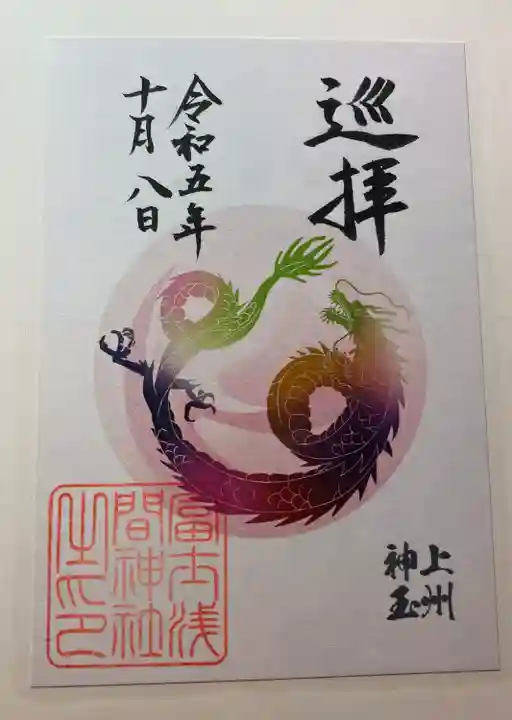 巡拝
令和五年
十月八日
上州
神玉
冨士浅
間神社
之印